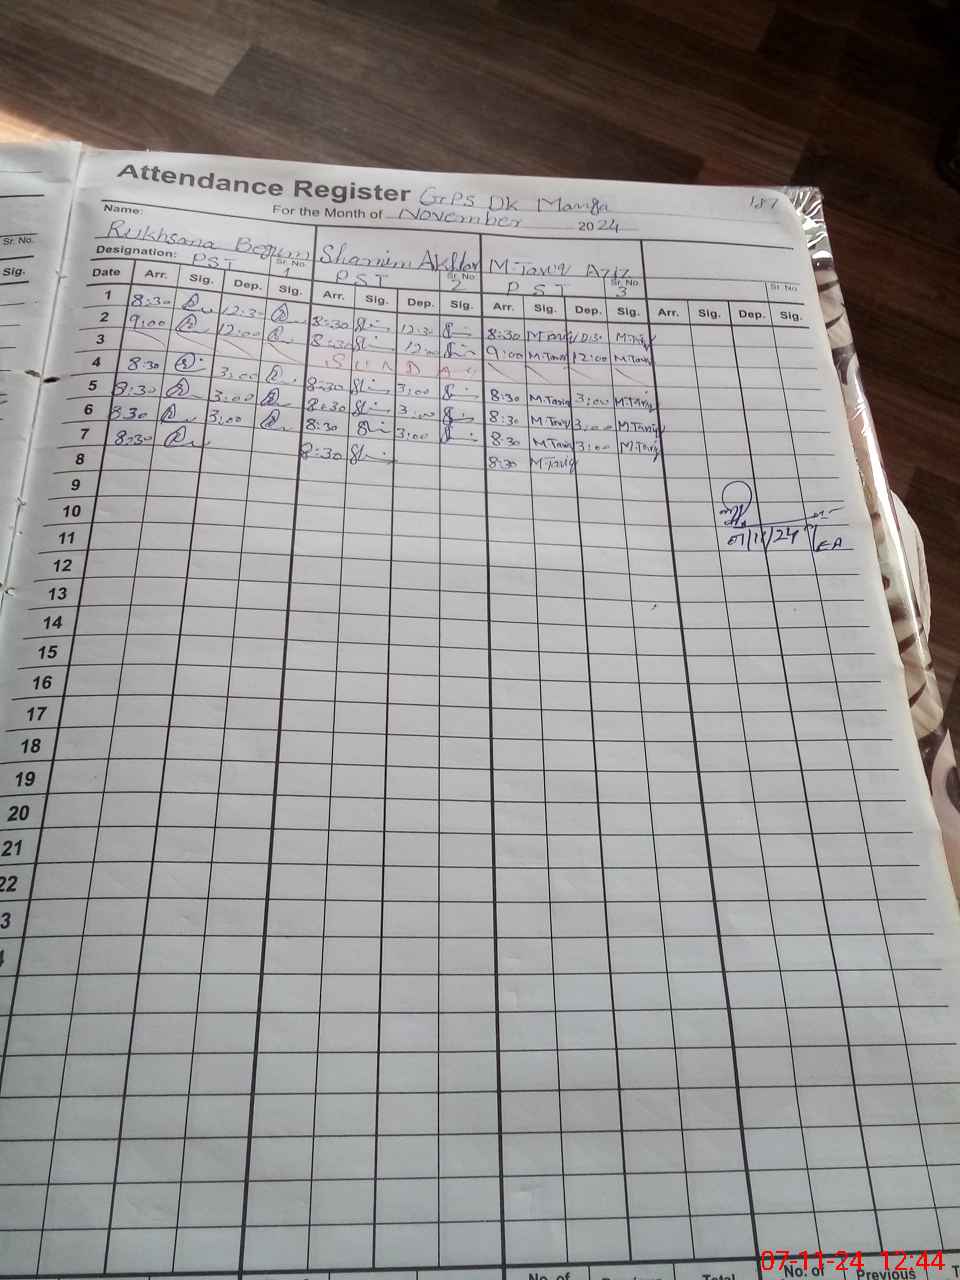 187
Attendance Register GPS DK Manga
For the Month of November 2024
Name: Rukhsana Begum Shamim Akhtar M. Tariq Aziz
Designation: PST Sr. No. 1 PST Sr. No. 2 PST Sr. No. 3 Sr. No.
Date Arr. Sig. Dep. Sig. Arr. Sig. Dep. Sig. Arr. Sig. Dep. Sig. Arr. Sig. Dep. Sig.
1 8:30 12:30 8:30 12:30 8:30 M.Tariq 12:30 M.Tariq
2 9:00 12:00 8:30 12:00 9:00 M.Tariq 12:00 M.Tariq
3 SUNDAY
4 8:30 3:00 8:30 3:00 8:30 M.Tariq 3:00 M.Tariq
5 8:30 3:00 8:30 3:00 8:30 M.Tariq 3:00 M.Tariq
6 8:30 3:00 8:30 3:00 8:30 M.Tariq 3:00 M.Tariq
7 8:30 8:30 8:30 M.Tariq
8
9
10
11 07/11/24 LEA
12
13
14
15
16
17
18
19
20
21
22
3
Sr. No.
Sig.
No. of Total No. of Previous
07-11-24 12:44